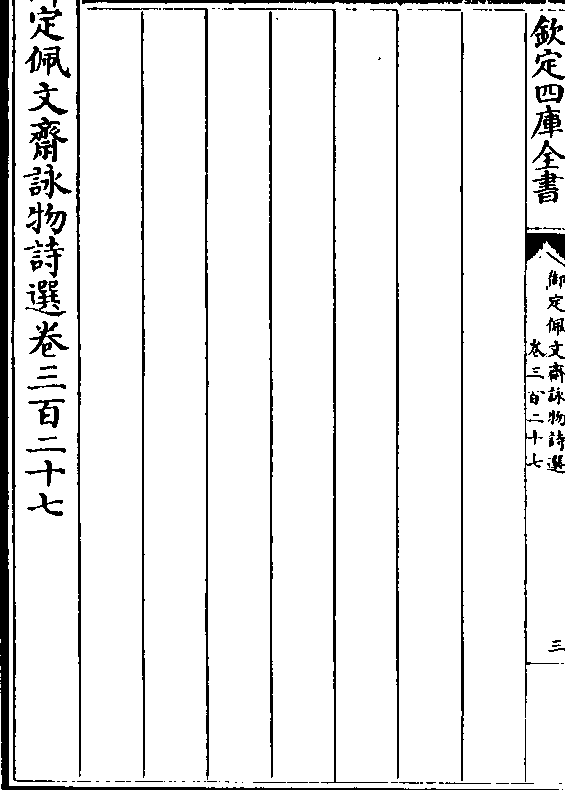 欽定四庫全書
御定佩文齋詠物詩選
卷三百二十七
三
定佩文齋詠物詩選卷三百二十七